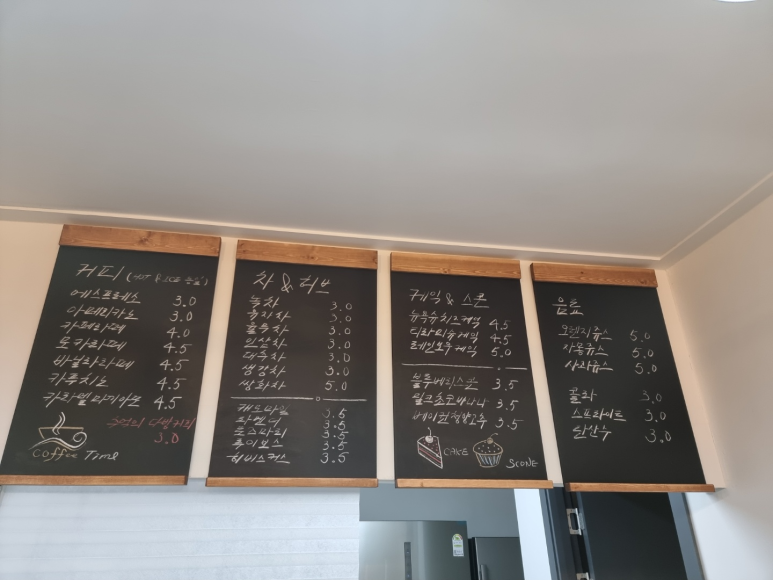 커피 (HOT & ICE 동일)
에스프레소 3.0
아메리카노 3.0
카페라떼 4.0
모카라떼 4.5
바닐라라떼 4.5
카푸치노 4.5
카라멜마끼아또 4.5
3.0
Coffee Time
차 & 허브
녹차 3.0
둥굴레차 3.0
인삼차 3.0
대추차 3.0
생강차 3.0
쌍화차 5.0
캐모마일 3.5
라벤더 3.5
로즈마리 3.5
루이보스 3.5
히비스커스 3.5
케익 & 스콘
뉴욕치즈케익 4.5
티라미슈케익 4.5
레인보우케익 5.0
블루베리스콘 3.5
밀크초코바나나 3.5
3.5
CAKE
SCONE
음료
오렌지쥬스 5.0
자몽쥬스 5.0
사과쥬스 5.0
콜라 3.0
스프라이트 3.0
탄산수 3.0